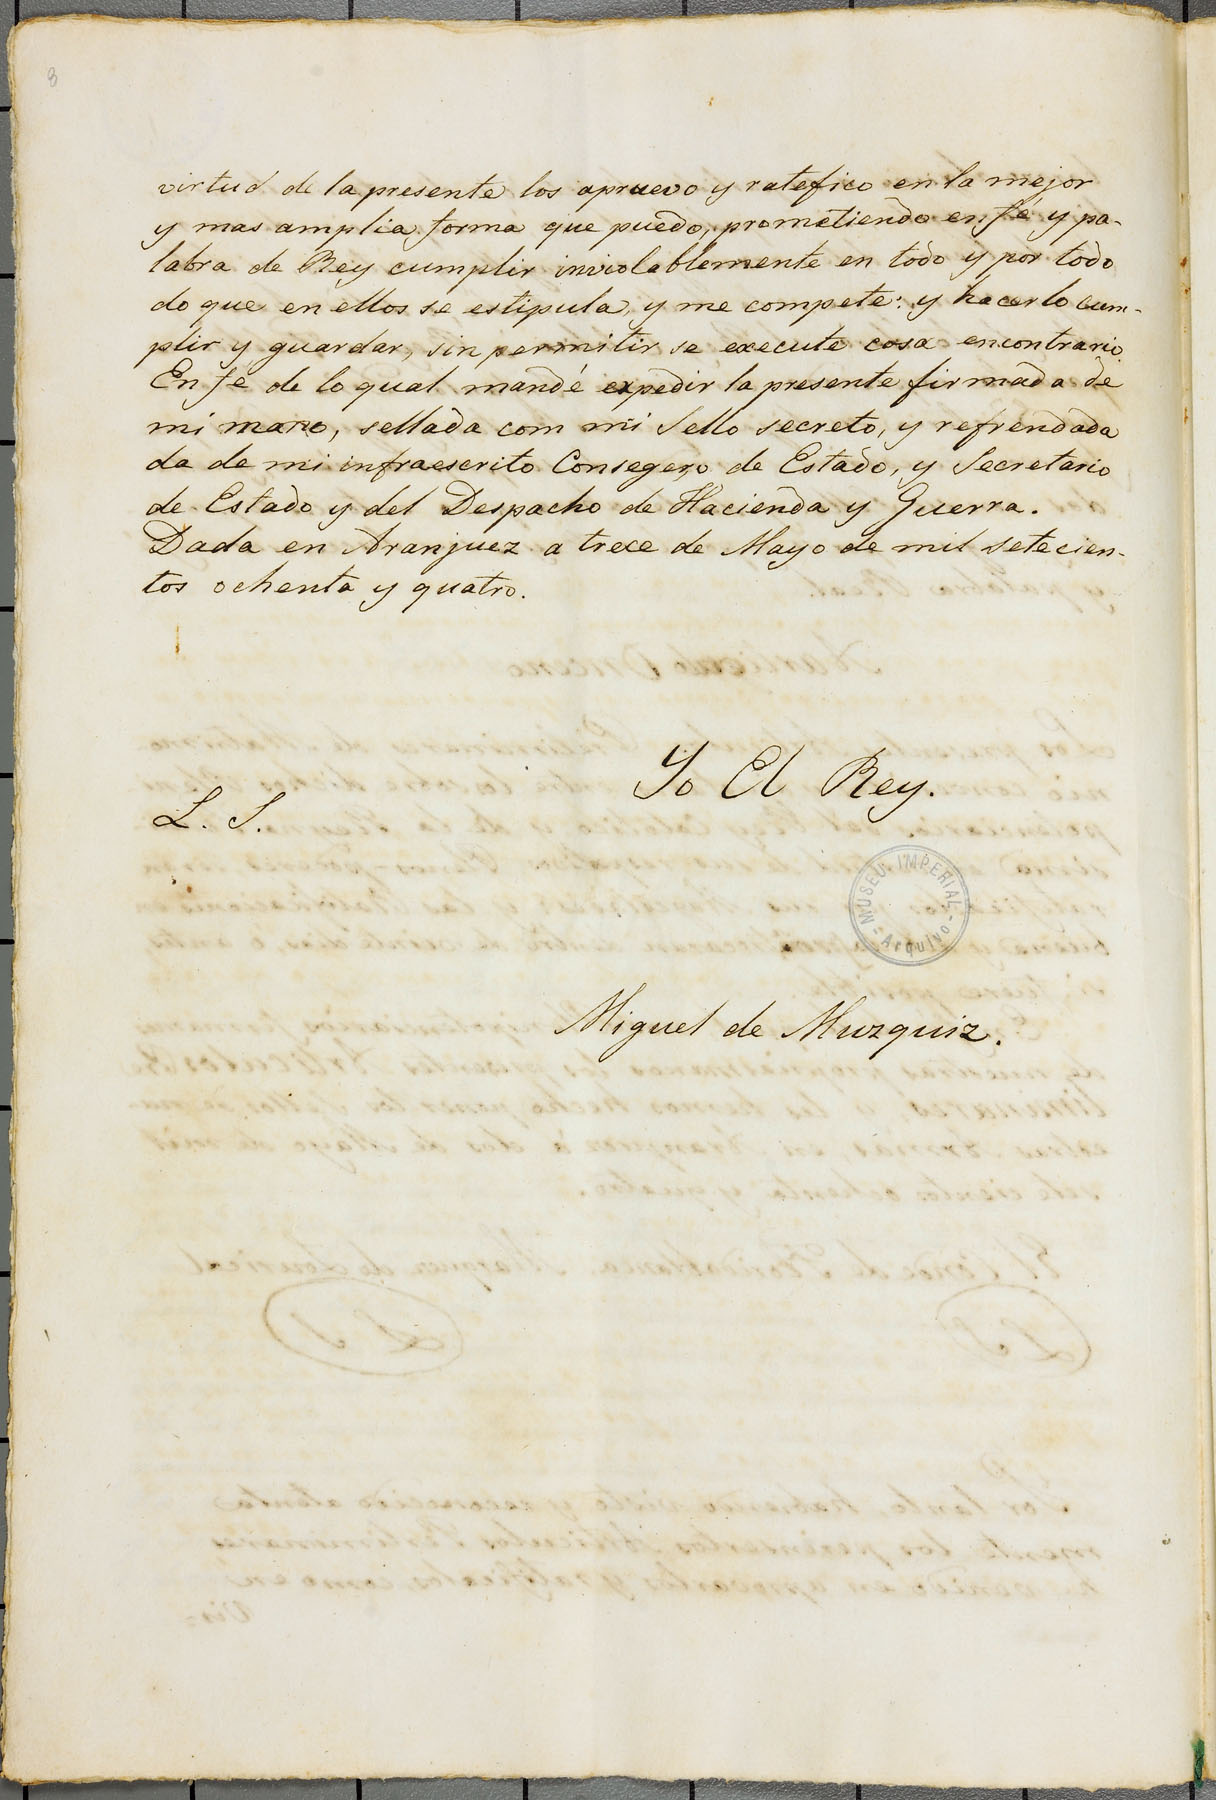 8
virtud de la presente los apruevo y ratefico en la mejor
y mas amplia forma que puedo, prometiendo en fé y pa-
labra de Rey cumplir inviolablemente en todo y por todo
do que en ellos se estipula, y me compete: y hacerlo cum-
plir y guardar, sin permitir se execute cosa encontrario.
En fe de lo qual mandé expedir la presente firmada de
mi mano, sellada com mi Sello secreto, y refrendada
da de mi infraescrito Consegero de Estado, y Secretario
de Estado y del Despacho de Hacienda y Guerra.
Dada en Aranjuez a trece de Mayo de mil setecien-
tos ochenta y quatro.
Yo El Rey.
L. S.
MUSEU IMPERIAL
- Arquivo -
Miguel de Muzquiz.